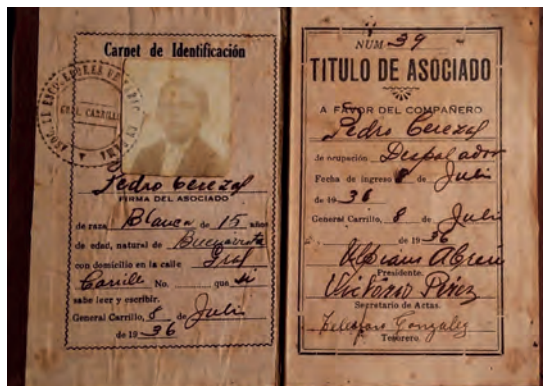 Carnet de Identificación
GRAL. CARRILLO
Pedro Cerezal
FIRMA DEL ASOCIADO
de raza Blanca de 15 años
de edad, natural de Buenavista
con domicilio en la calle Gral
Carrillo No. que si
sabe leer y escribir.
General Carrillo, 8 de Juli
de 1936
NUM 39
TITULO DE ASOCIADO
A FAVOR DEL COMPAÑERO
Pedro Cerezal
de ocupación Despalador
Fecha de ingreso 8 de Juli
de 1936
General Carrillo, 8 de Juli
de 1936
Ulpiano Abreu
Presidente.
Victorio Pérez
Secretario de Actas.
Telesforo Gonzalez
Tesorero.